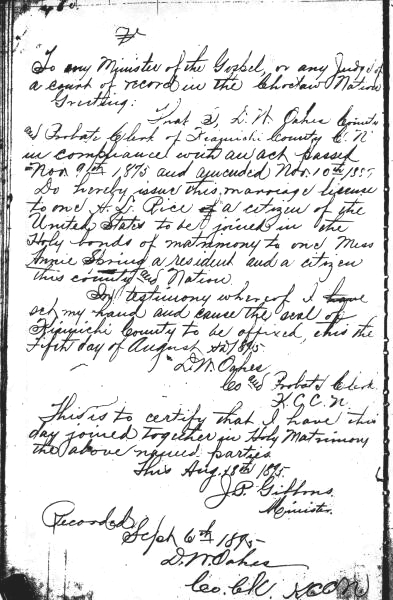 To any Minister of the Gospel, or any Judge of
a court of record in the Choctaw Nation
Greeting:
That I, D. W. Oakes County
and Probate Clerk of Kiamichi County C. N.
in compliance with an act passed
Nov. 9th, 1875 and amended Nov. 10th
Do hereby issue this marriage license
to one H. L. Rice a citizen of the
United States to be joined in the
Holy bonds of matrimony to one Miss
Annie Spring a resident and a citizen
this county and Nation
In testimony whereof I have
set my hand and cause the seal of
County to be affixed, this the
Fifth day of August 1895
D. W. Oakes
Co and Probate Clerk
K. C. C. N.
This is to certify that I have this
day joined together in Holy Matrimony
the above named parties
This Aug. 1895.
J. P. Gibbons.
Minister.
Recorded
Sept 6th 1895-
D. W. Oakes
Co. Clk. K C C N